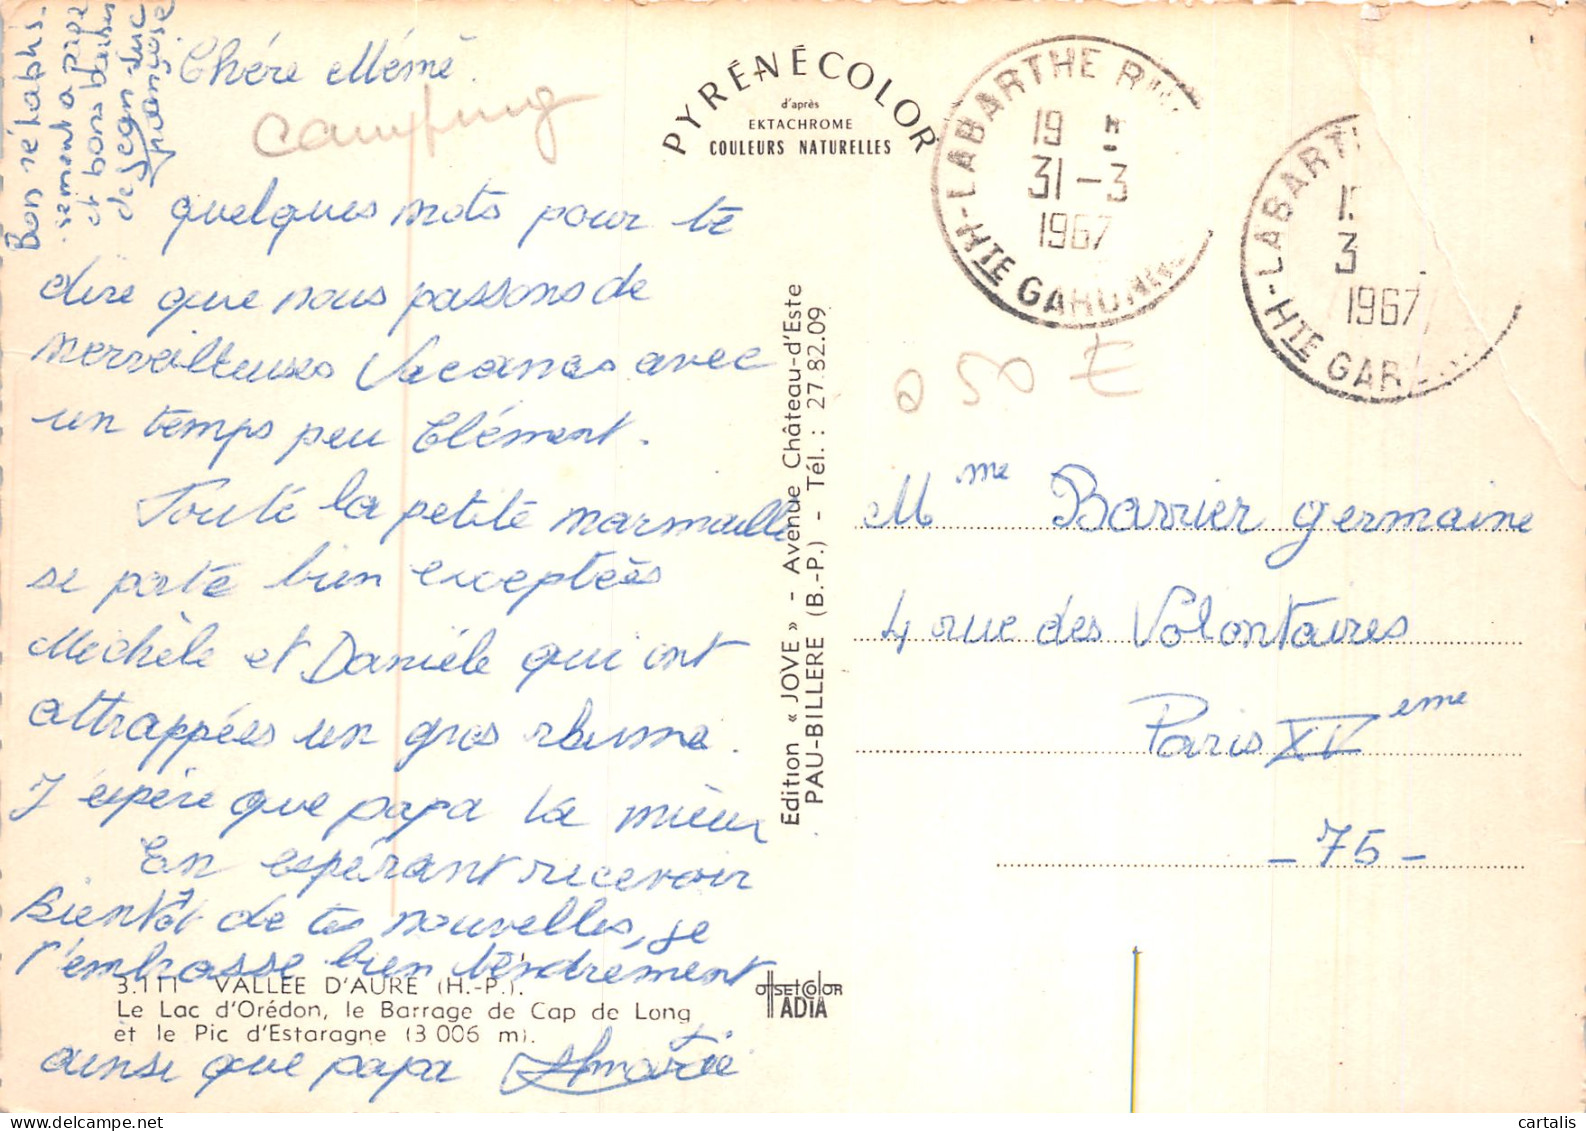 Bon rétablis-
sement a papa
et bons baisers
de Jean-Luc
Françoise
Chére Mémé.
camping
quelques mots pour te
dire que nous passons de
merveilleuses Vacances avec
un temps peu Clément.
Toute la petite marmaille
se porte bien exceptées
Michèle et Danièle qui ont
attrappées un gros rhume.
J'espère que papa va mieux
En espérant recevoir
Bientôt de tes nouvelles, je
t'embrasse bien tendrement
ainsi que papa
3.111 VALLÉE D'AURE (H.-P.).
Le Lac d'Orédon, le Barrage de Cap de Long
et le Pic d'Estaragne (3 006 m).
PYRÉNÉCOLOR
d'après
EKTACHROME
COULEURS NATURELLES
Edition « JOVE » - Avenue Château-d'Este
PAU-BILLERE (B.-P.) - Tél. : 27.82.09
OFFSETCOLOR
IADIA
LABARTHE
19 H
31-3
1967
HTE GARONNE
LABART
3
1967
HTE GAR
050 E
Mme Barrier germaine
4 rue des Volontaires
Paris XVeme
- 75 -
cartalis